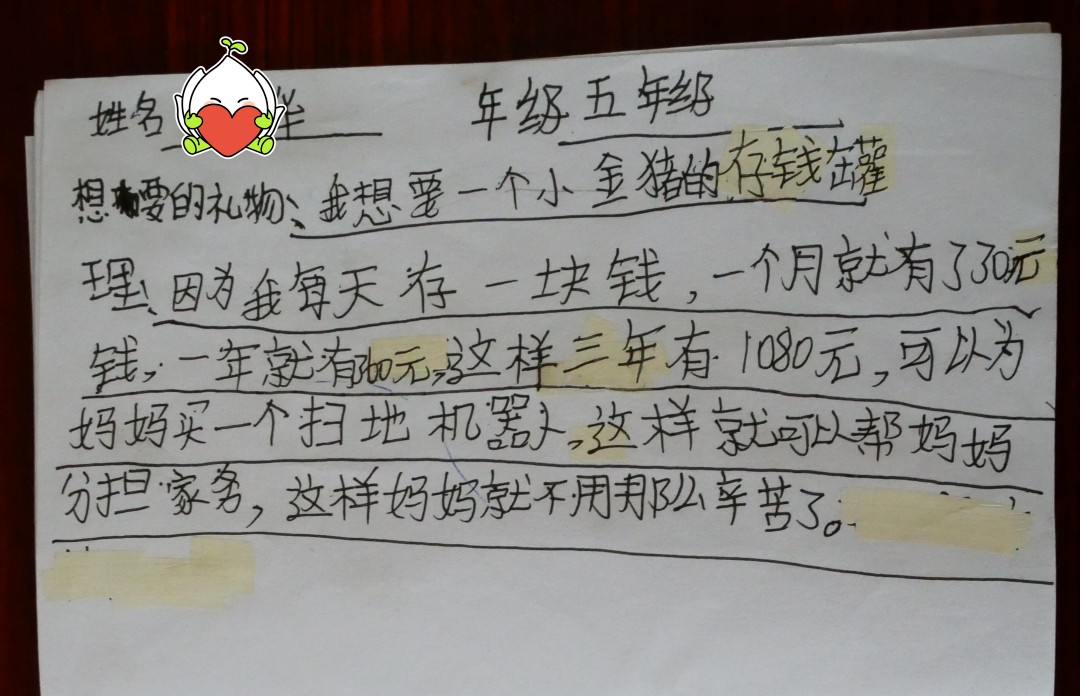 姓名 年级五年级
想要的礼物、我想要一个小金猪的存钱罐
理、因为我每天存一块钱,一个月就有了30元
钱,一年就有360元,这样三年有1080元,可以为
妈妈买一个扫地机器人,这样就可以帮妈妈
分担家务,这样妈妈就不用那么辛苦了。